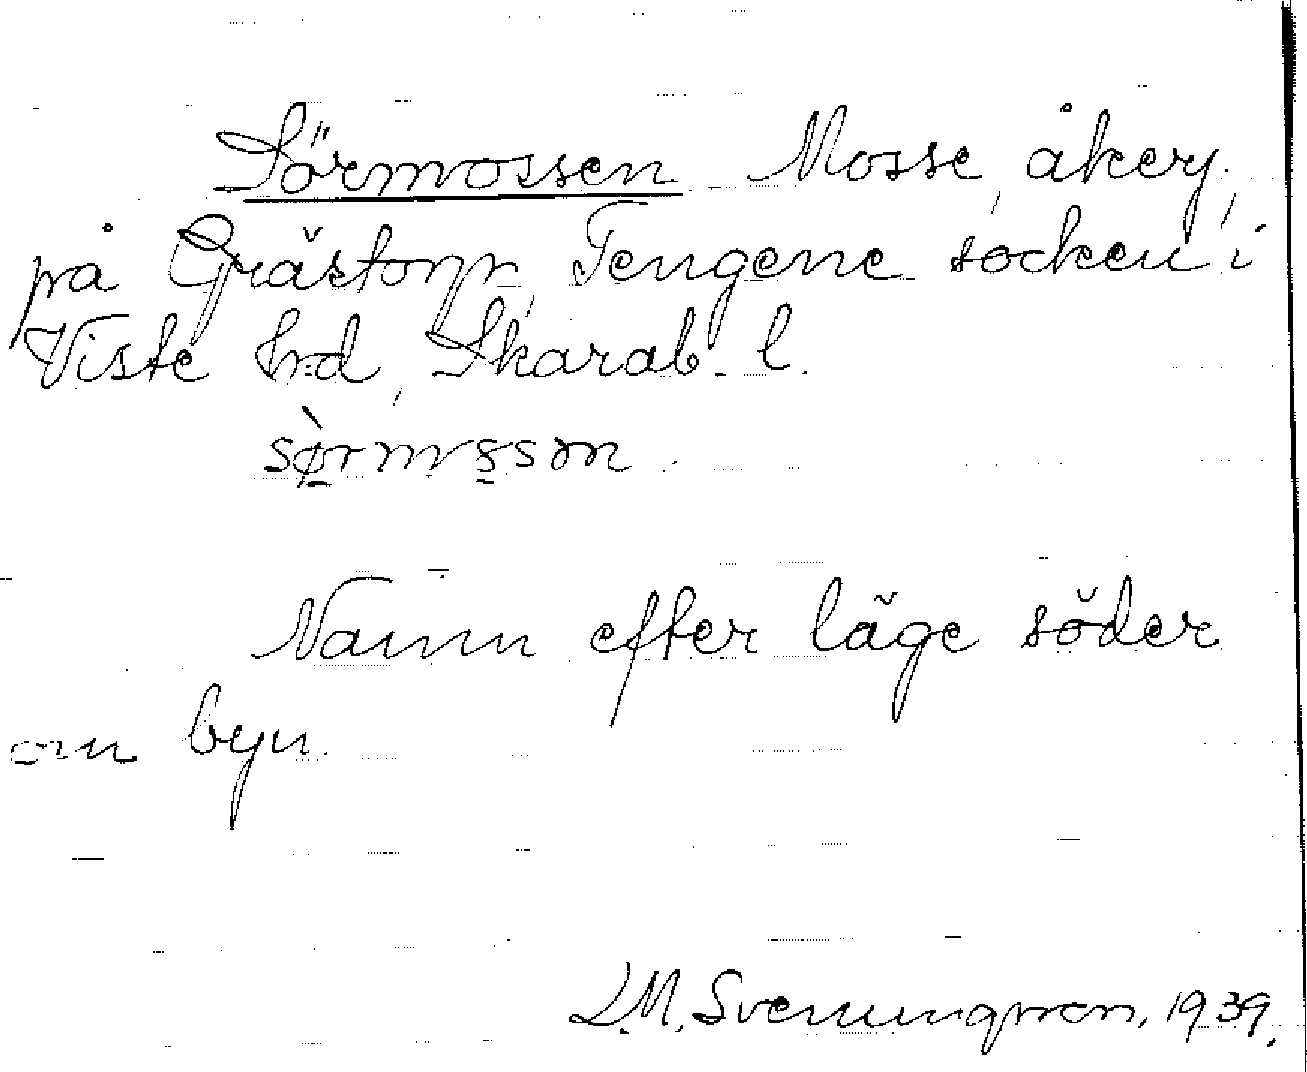 Sörmossen Mosse, åker,
på Grästorp, Tengene socken i
Viste hd, Skarab. l.
Namn efter läge söder
om byn.
L.M. Svenungsson, 1939.